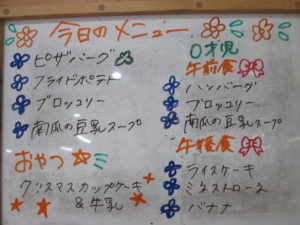 今日のメニュー
ピザバーグ
フライドポテト
ブロッコリー
南瓜の豆乳スープ
おやつ
クリスマスカップケーキ
&牛乳
0才児
午前食
ハンバーグ
ブロッコリー
南瓜の豆乳スープ
午後食
ライスケーキ
ミネストローネ
バナナ